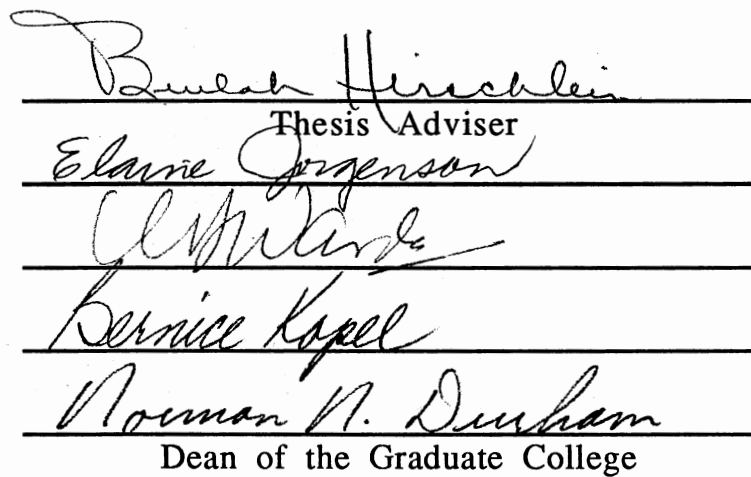 Beulah Hirschlein
Thesis Adviser
Elaine Jorgenson
Bernice Kopel
Norman N. Durham
Dean of the Graduate College